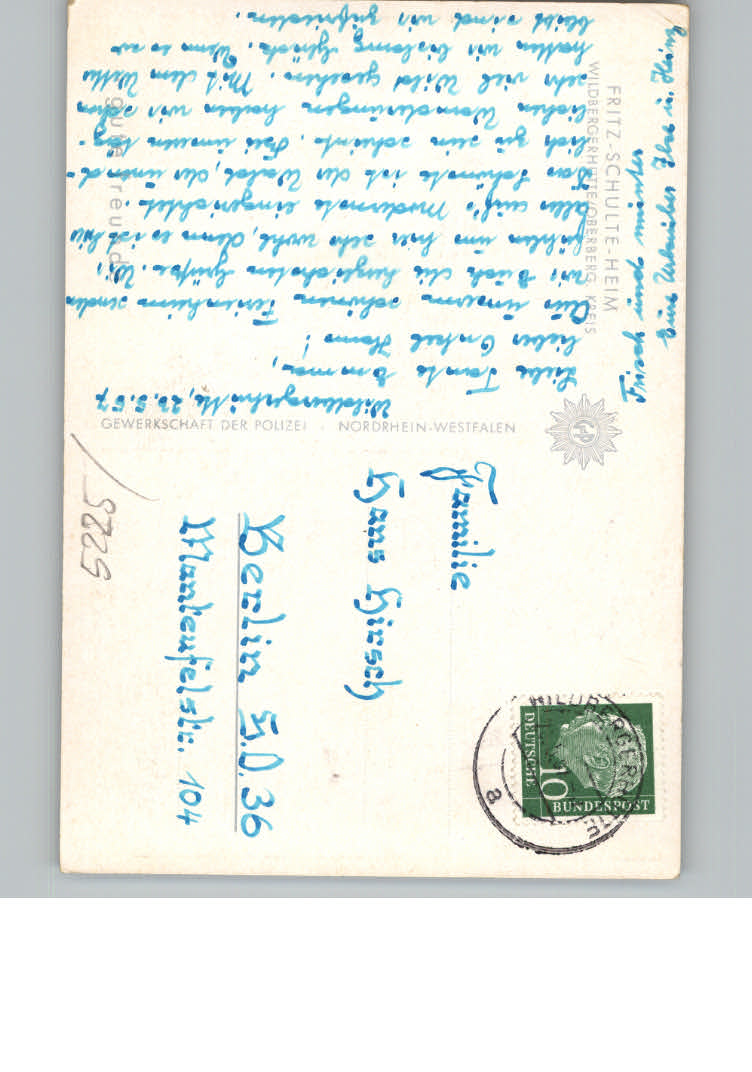 FRITZ-SCHULTE-HEIM
WILDBERGERHÜTTE/OBERBERG. KREIS
GEWERKSCHAFT DER POLIZEI · NORDRHEIN-WESTFALEN
gute Freunde
Wildbergerhütte, 23.5.57
Liebe Tante Emma,
lieber Onkel Hans!
Aus unserem schönen Ferienheim senden
wir Euch die herzlichsten Grüße. Wir
fühlen uns hier sehr wohl, denn es ist hier
alles auf's Modernste eingerichtet.
Das Schönste ist der Wald, der unend-
lich zu sein scheint. Bei unseren täg-
lichen Wanderungen haben wir schon
sehr viel Wild gesehen. Mit dem Wetter
hatten wir bislang Glück. Wenn es so
bleibt sind wir zufrieden.
Eure Urlauber Ilse u. Heinz
Familie
Hans Hirsch
Berlin S.O. 36
Manteufelstr. 104
5225
DEUTSCHE
BUNDESPOST
10
WILDBERGERHÜTTE
a